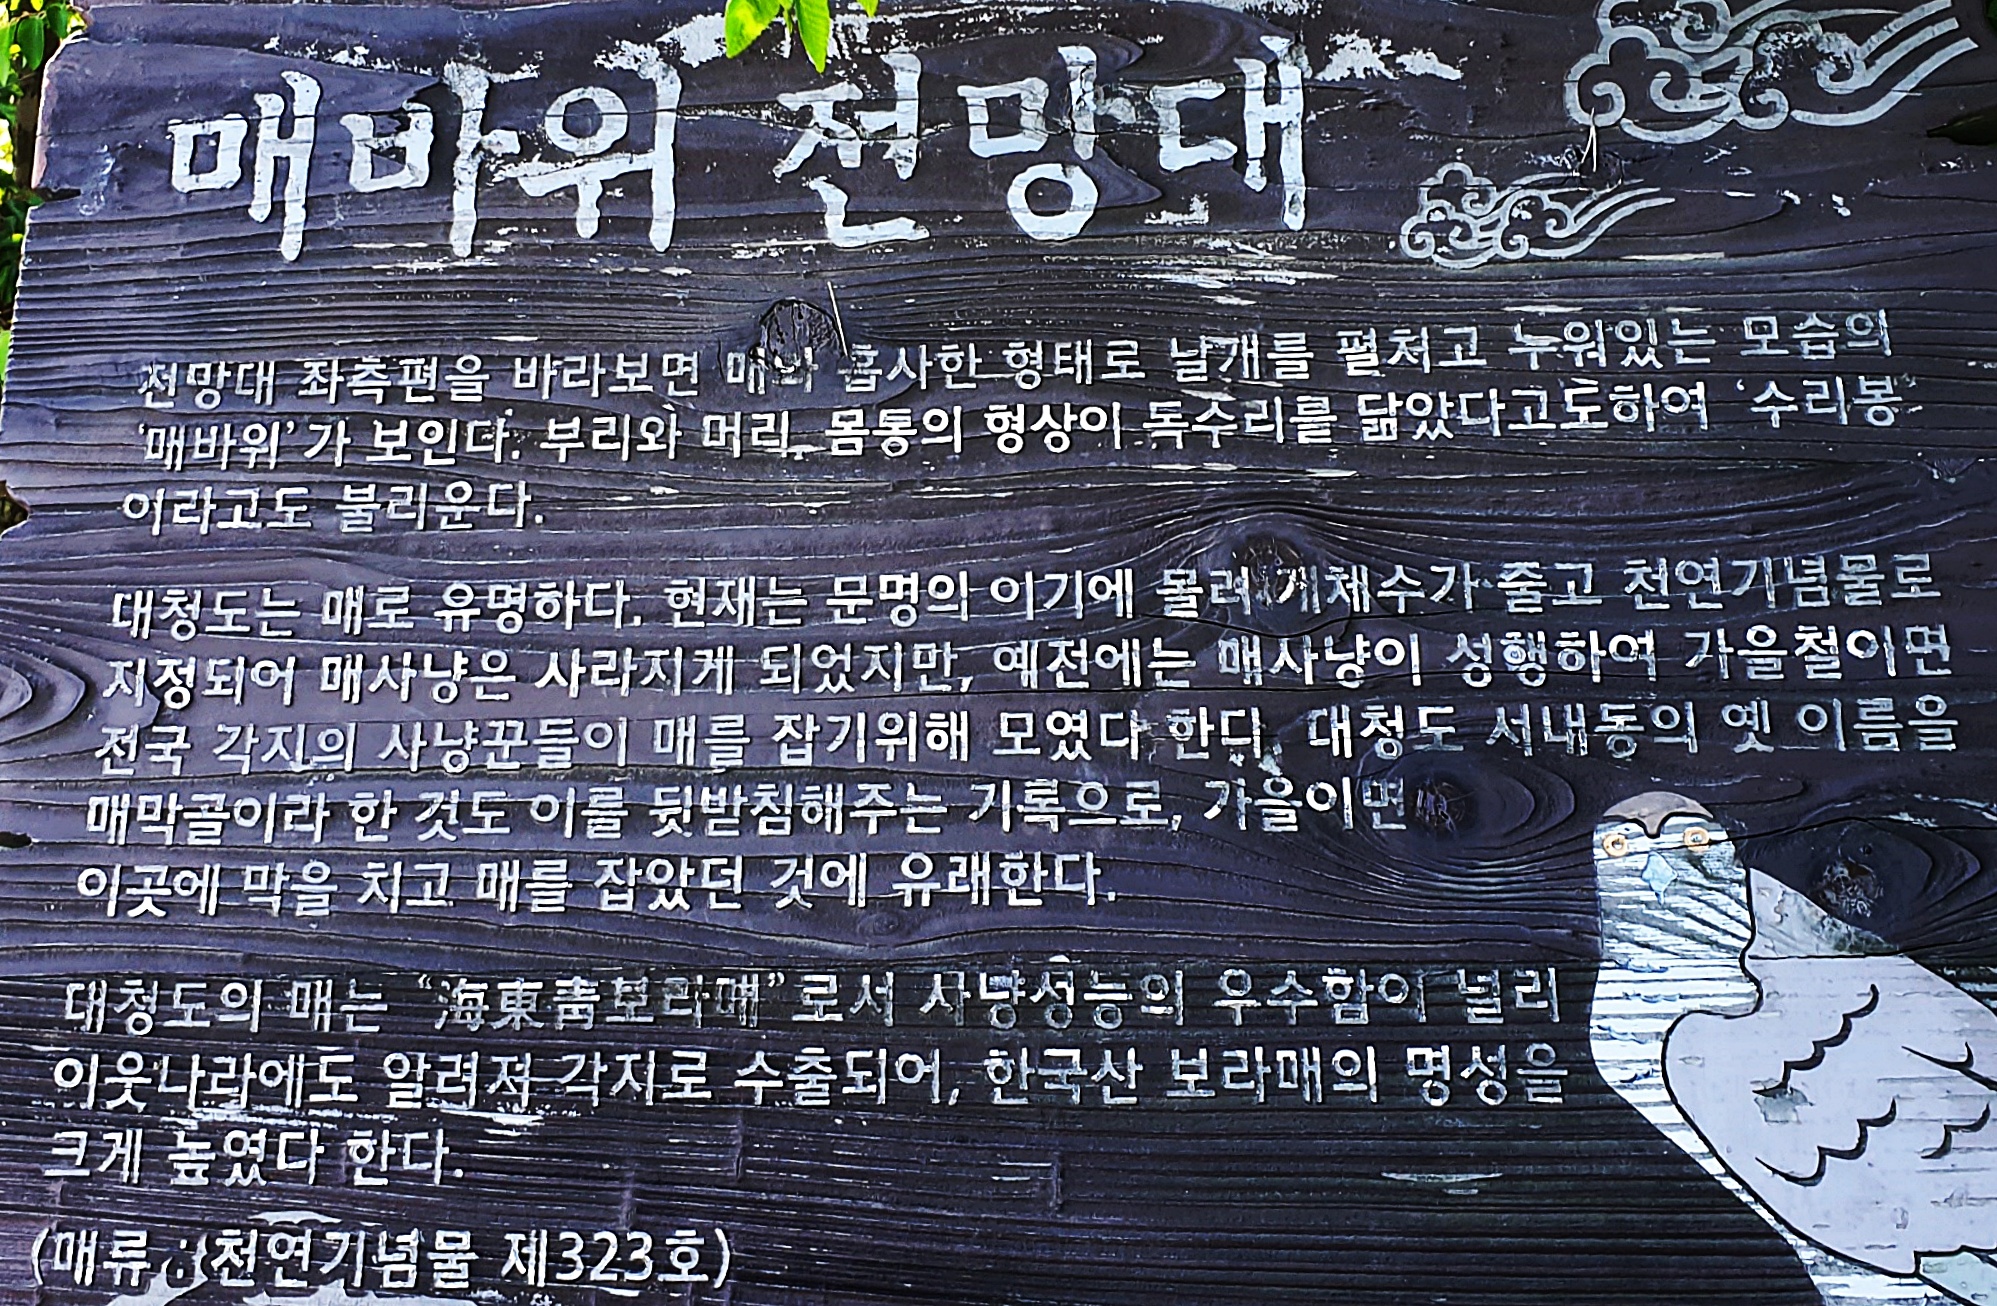 매바위 전망대
전망대 좌측편을 바라보면 매와 흡사한 형태로 날개를 펼쳐고 누워있는 모습의
‘매바위’가 보인다. 부리와 머리, 몸통의 형상이 독수리를 닮았다고도하여 ‘수리봉’
이라고도 불리운다.
대청도는 매로 유명하다. 현재는 문명의 이기에 몰려 개체수가 줄고 천연기념물로
지정되어 매사냥은 사라지게 되었지만, 예전에는 매사냥이 성행하여 가을철이면
전국 각지의 사냥꾼들이 매를 잡기위해 모였다 한다. 대청도 서내동의 옛 이름을
매막골이라 한 것도 이를 뒷받침해주는 기록으로, 가을이면
이곳에 막을 치고 매를 잡았던 것에 유래한다.
대청도의 매는 “海東靑보라매”로서 사냥성능의 우수함이 널리
이웃나라에도 알려져 각지로 수출되어, 한국산 보라매의 명성을
크게 높였다 한다.
(매류 : 천연기념물 제323호)